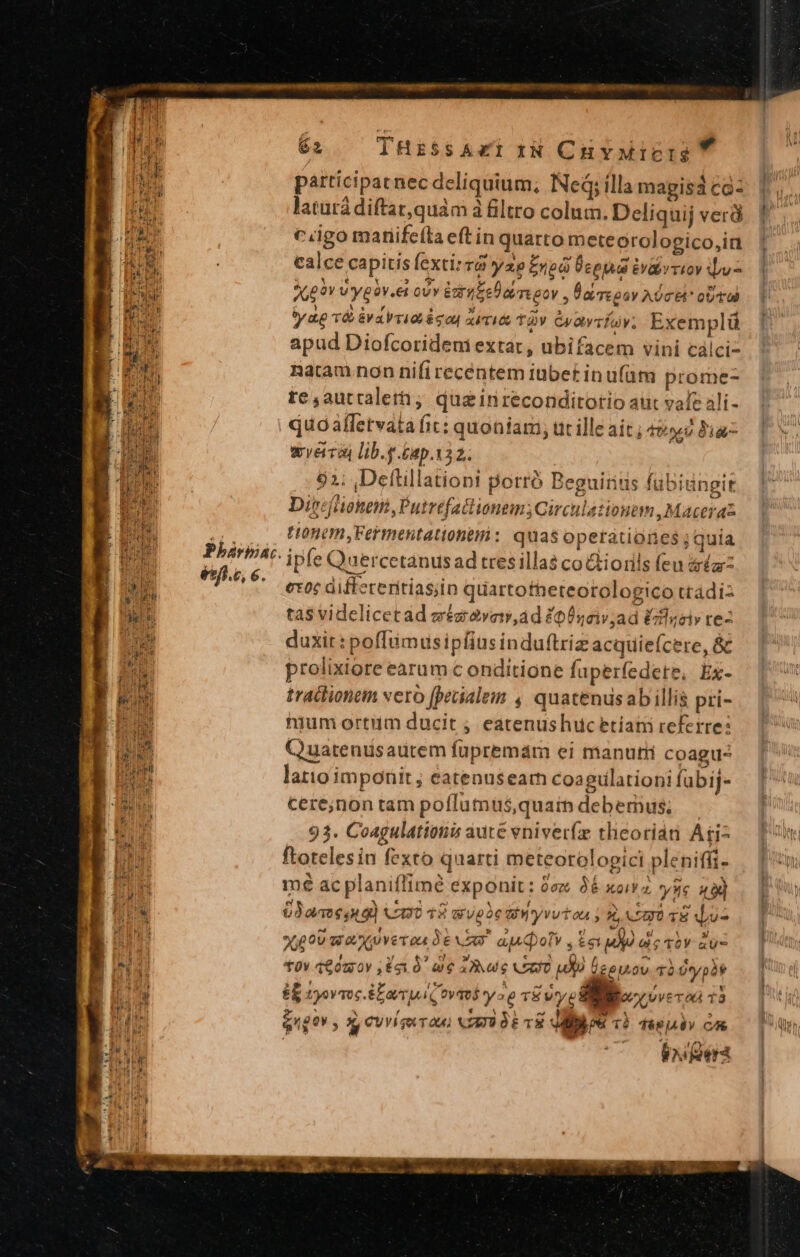 62 THESSARI IN CHYMICIS
participat nec deliquium. Neq; illa magis à coa-
laturâ distat, quàm à filtro colum. Deliquij verò
origo manifesta est in quarto meteorologico, in
calce capitis sexti: τῷ γὰρ ξηρῷ θερμῷ ἐνάντιον ψυ-
χρὸν ὑγρὸν. εἰ οὖν ἐπηξε θάτερον, θάτερον λύσει· οὕτω
γὰρ τὰ ἐνάντια ἔσαι αἴτια τῶν ἐναντίων. Exemplū
apud Dioscoridem extat, ubi facem vini calci-
natam non nisi recentem iubet in usum prome-
re, aut talem, quæ in reconditorio aut vase ali-
quo asservata sit: quoniam, ut ille ait, δια-
πνεῖται lib. 5. cap. 132.
92. Destillationi porrò Beguinus subiungit
Digestionem, Putrefactionem, Circulationem, Macera-
tionem, Fermentationem: quas operationes, quia
Pharmac. ipse Quercetanus ad tres illas coctionis seu
rest. c, 6. differentias, in quarto meteorologico tradi-
tas videlicet ad πέπανσιν, ad ἕφησιν, ad re-
duxit: possumus ipsius industriæ acquiescere, &
prolixiore earum conditione supersedere. Ex-
tractionem vero specialem, quatenus ab illis pri-
mum ortum ducit, eatenus huc etiam referre:
Quatenus autem supremam ei manum coagu-
latio imponit, eatenus eam coagulationi subij-
cere, non tam possumus, quam debemus.
93. Coagulationis autē vniversæ theorian Ari-
stoteles in sexto quarti meteorologici plenissi-
mè ac planissimè exponit: ὅσα δὲ κοινὰ γῆς καὶ
ὕδατος, καὶ ὑπὸ τȣ πυρὸς πήγνυται, καὶ ὑπὸ τȣ ψυ-
χροῦ παχύνεται δὲ ὑπ' ἀμφοῖν, ἔστι μὲν ὡς τὸν αὐ-
τὸν τρόπον, ἔστι δ' ὡς ἄλλως ὑπὸ μὲν θερμου τὸ ὑγρὸν
ἐξάγοντος. ἐξατμίζοντος γὰρ τȣ ὑγρȣ παχύνεται τὸ
ξηρὸν, καὶ συνίσταται ὑπὸ δὲ τȣ ψυχρȣ τὸ θερμὸν